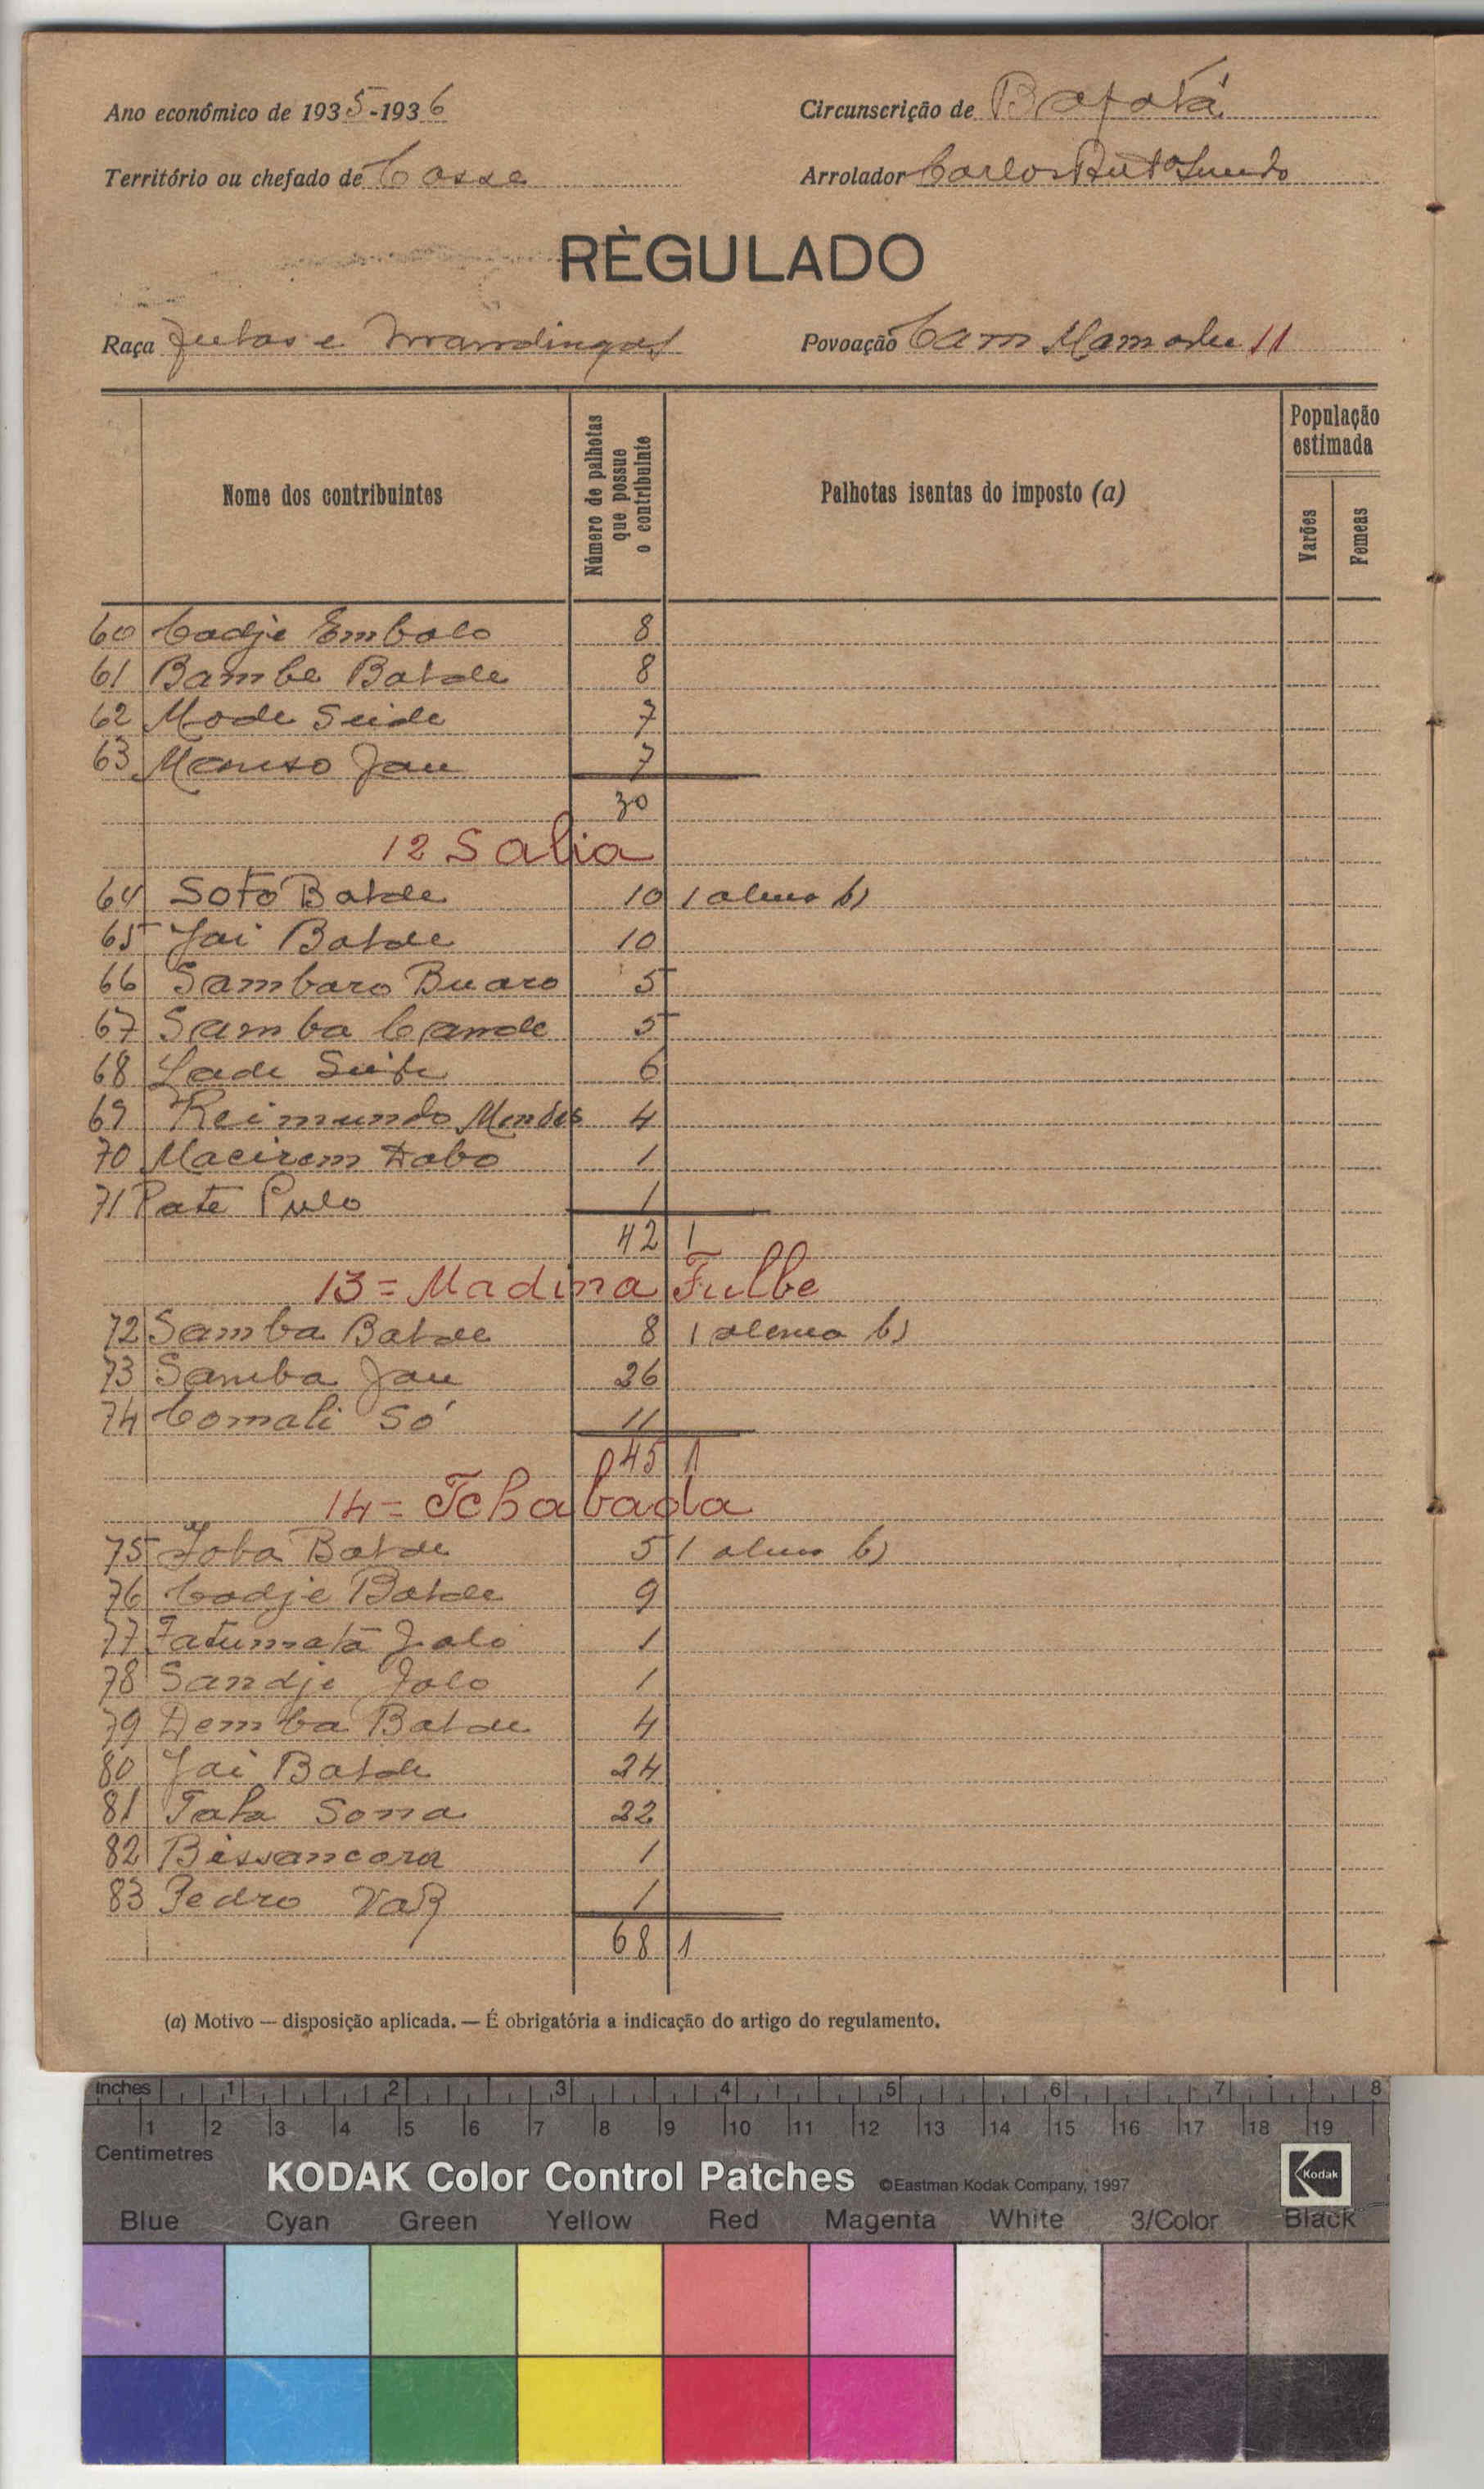 Ano económico de 1935-1936 Circunscrição de Bafatá
Território ou chefado de Cosse Arrolador Carlos
RÈGULADO
Raça Fulas e Mandingas Povoação Cam Mamadu 11
Nome dos contribuintes
Número de palhotas que possue o contribuinte
Palhotas isentas do imposto (a)
População estimada
Varões
Femeas
60 Cadje Embalo 8
61 Bambe Balde 8
62 Mode Seide 7
63 Manso Jau 7
30
12 Salia
64 Sofo Balde 10 1 alinea b)
65 Jai Balde 10
66 Sambaro Buaro 5
67 Samba Cande 5
68 Lade Seide 6
69 Reimundo Mendes 4
70 Macirem Dabo 1
71 Pate Pulo 1
42 1
13 = Madina Fulbe
72 Samba Balde 8 1 alinea b)
73 Samba Jau 26
74 Comali Só 11
45 1
14 = Tchabada
75 Joba Balde 5 1 alinea b)
76 Codje Balde 9
77 Fatumatá Jaló 1
78 Sandji Jalo 1
79 Demba Balde 4
80 Jai Balde 24
81 Tala Sona 22
82 Bissancora 1
83 Pedro Vaz 1
68 1
(a) Motivo — disposição aplicada. — É obrigatória a indicação do artigo do regulamento.
Inches 1 2 3 4 5 6 7 8
1 2 3 4 5 6 7 8 9 10 11 12 13 14 15 16 17 18 19
Centimetres
KODAK Color Control Patches ©Eastman Kodak Company, 1997 Kodak
Blue Cyan Green Yellow Red Magenta White 3/Color Black